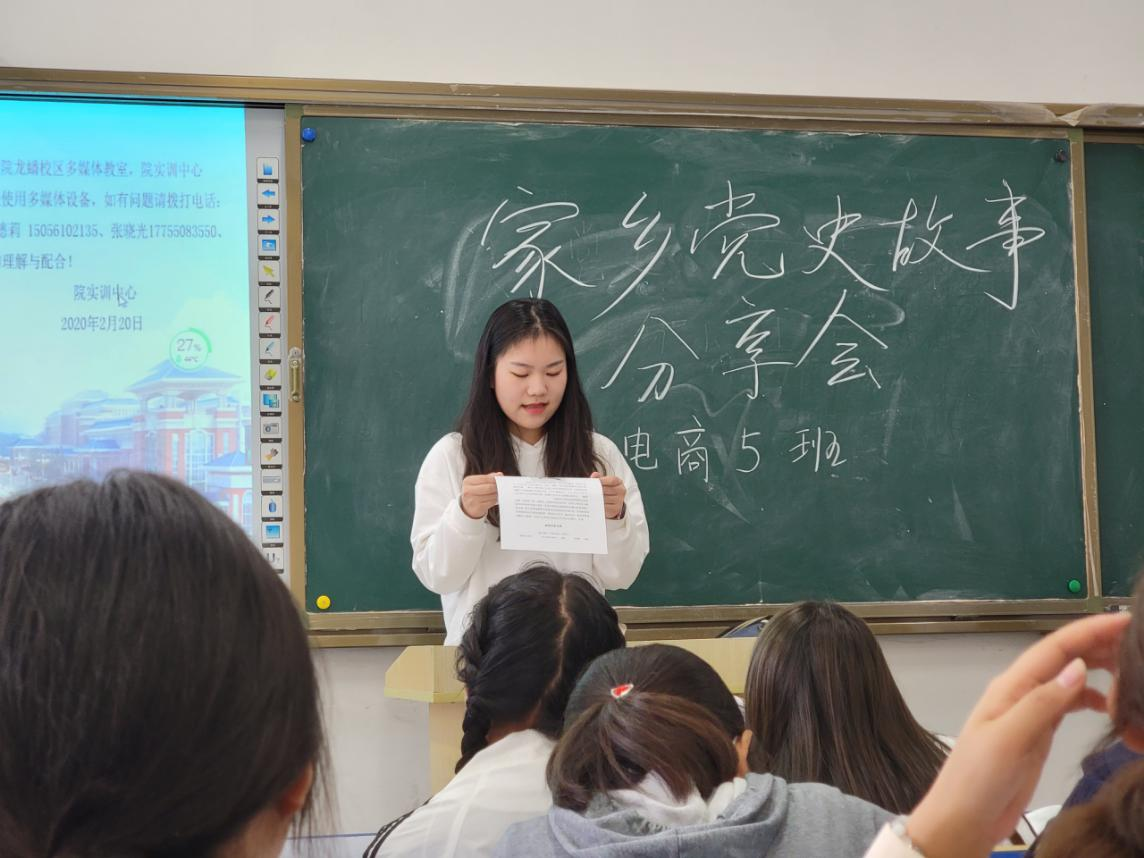 院龙蟠校区多媒体教室，院实训中心
使用多媒体设备，如有问题请拨打电话：
德莉 15056102135、张晓光17755083550、
理解与配合！
院实训中心
2020年2月20日
27%
44℃
家乡党史故事
分享会
电商5班